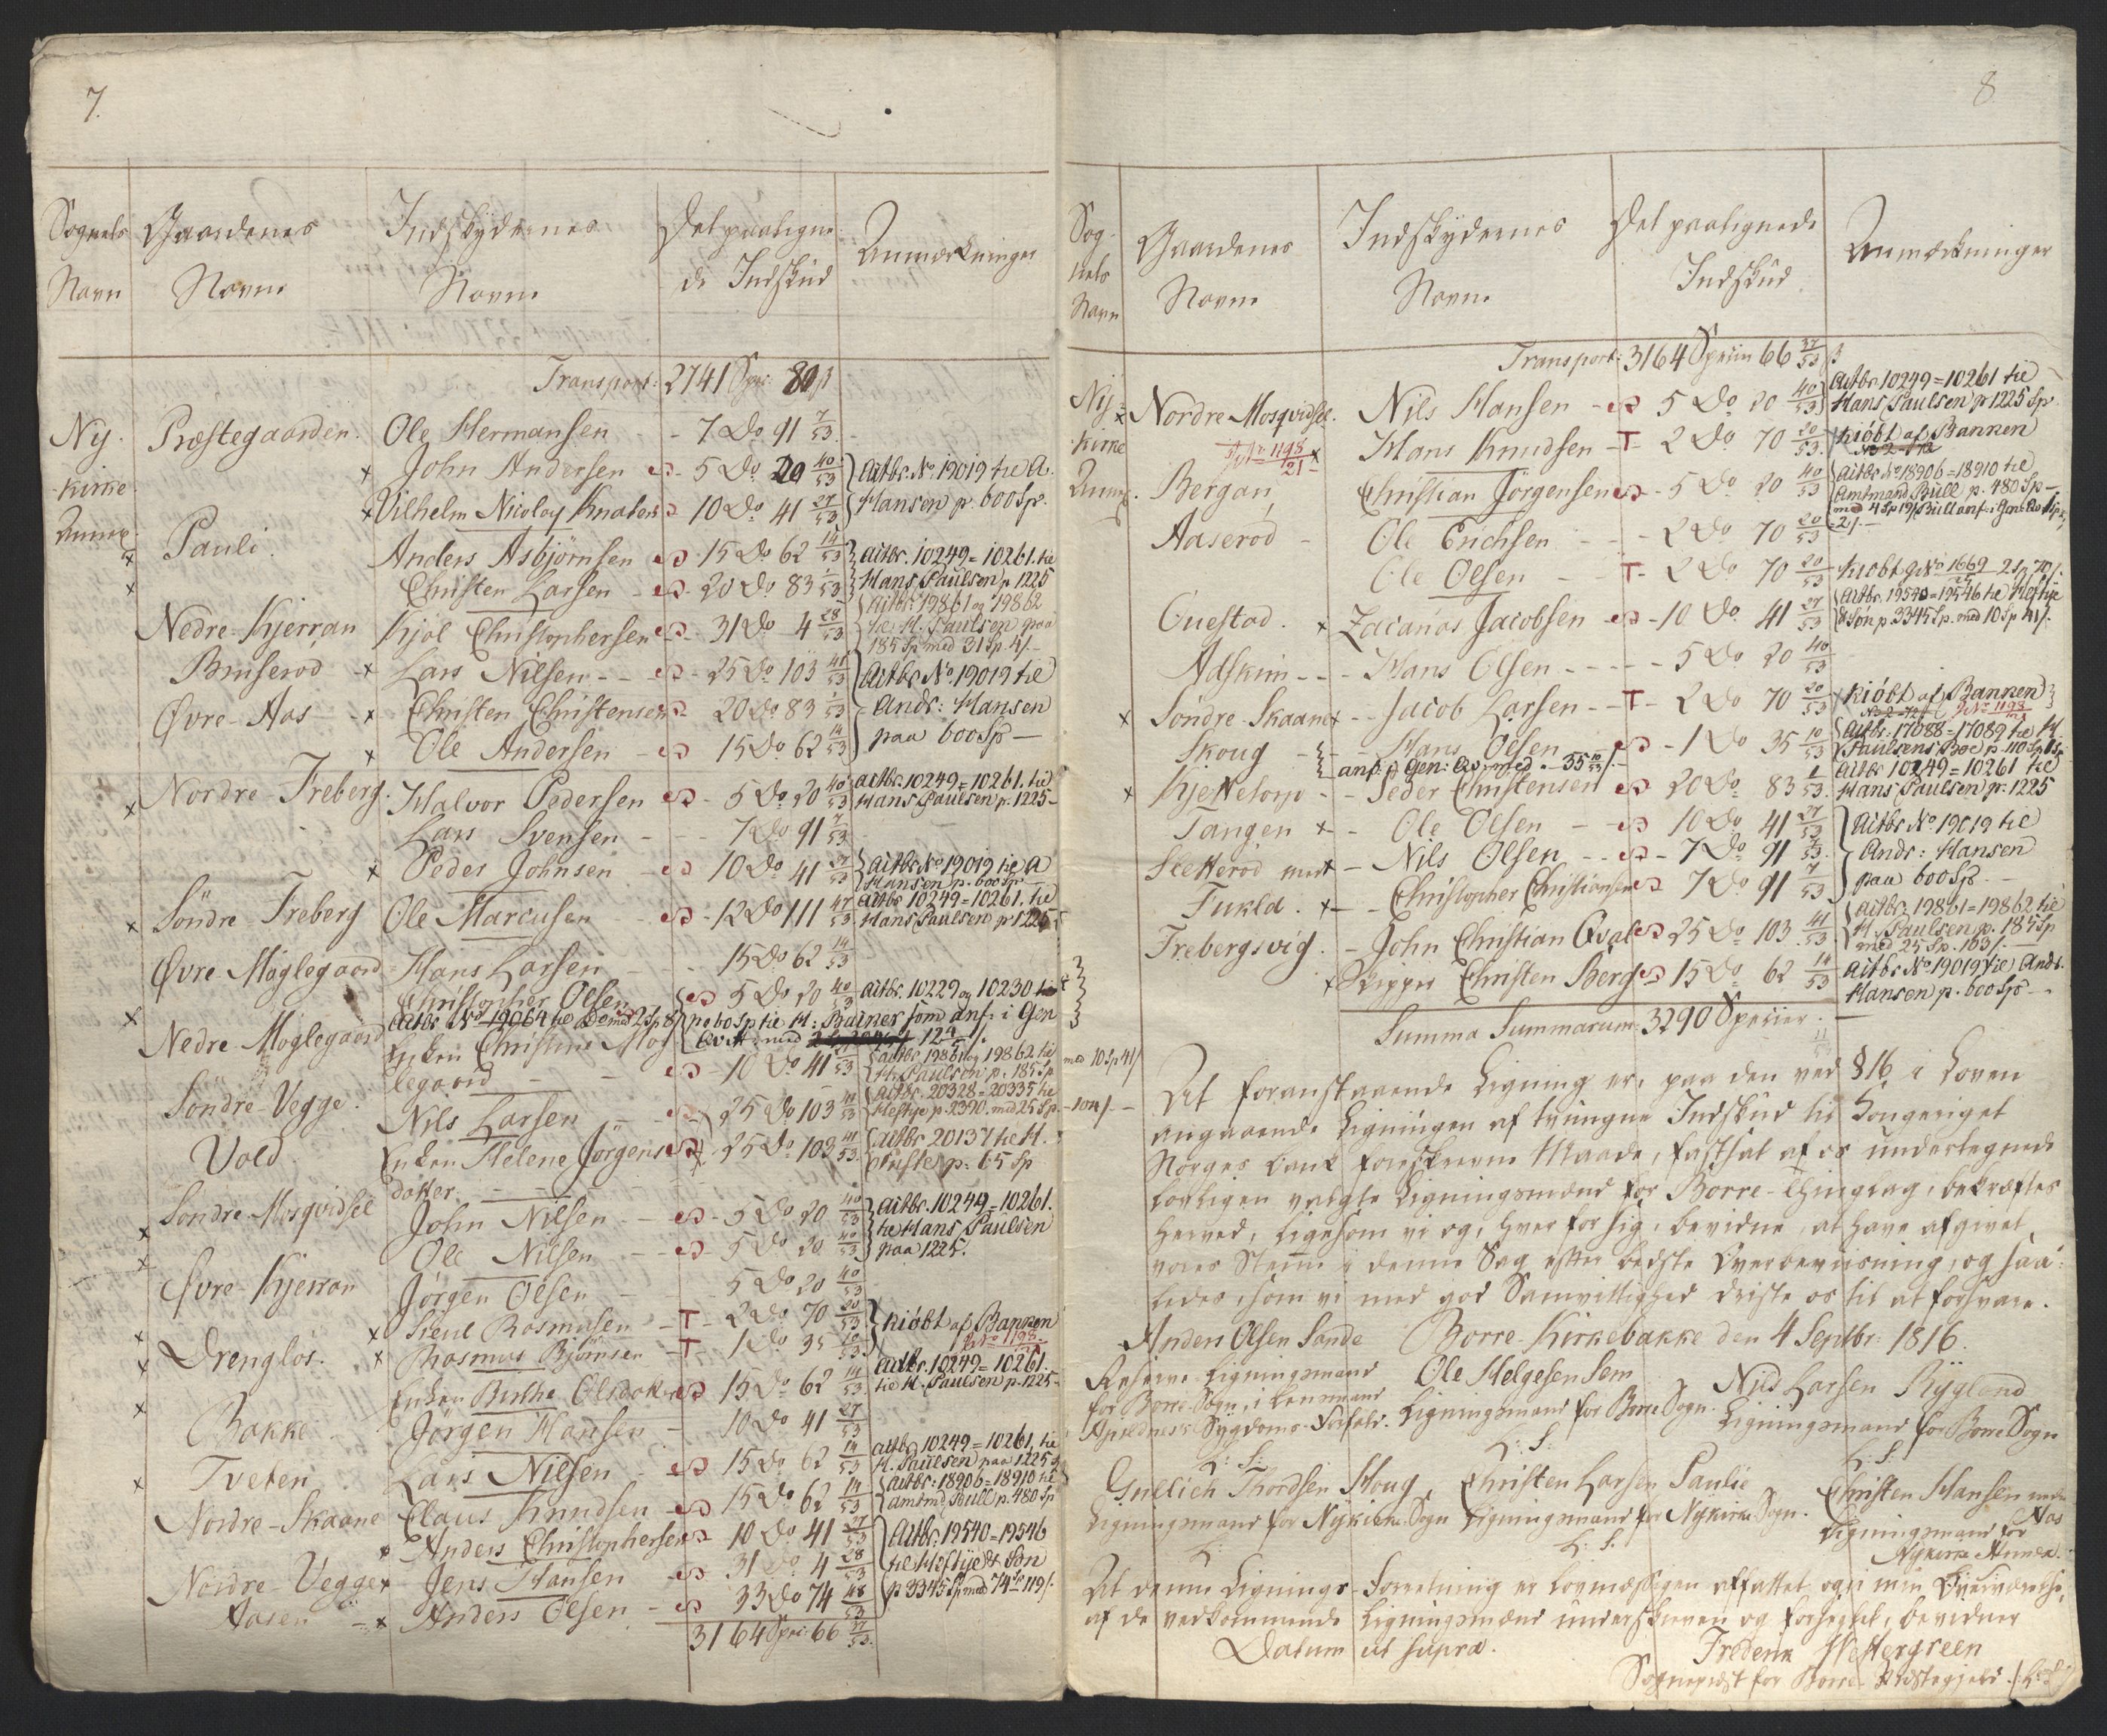 7.
Sognets Gaardenes Indskydernes Det paaligne- Anmærkninger
Navn Navne Navne de Indskud
Transport: 2741 Spec: 80 ß
Ny- Præstegaarden. Ole Hermansen - - 7 Do 91 7/53
kirke × John Andersen - 5 Do 20 40/53 Actbr. No 19019 til A.
Annex × Vilhelm Nicolay - 10 Do 41 27/53 Hansen p. 600 Sp.
× Pauli. Anders Asbjørnsen - 15 Do 62 14/53 Actbr. 10249=10261. til
× Christen Larsen - 20 Do 83 1/53 Hans Paulsen p 1225
Nedre-Kjerran Kjøl Christophersen - 31 Do 4 28/53 Actbr. 19861 og 19862
til H. Paulsen paa
185 Sp. med 31 Sp. 4/-
Bruserød × Lars Nilsen - - 25 Do 103 41/53 Actbr No. 19019 til
Øvre-Aas - × Christen Christensen 20 Do 83 1/53 Andr: Hansen
× Ole Andersen - 15 Do 62 14/53 paa 600 Sp -
× Nordre-Freberg. Halvor Pedersen - 5 Do 20 40/53 actbr. 10249=10261. til
Hans Paulsen p. 1225-
Lars Svensen - - 7 Do 91 7/53
× Peder Johnsen 10 Do 41 27/53 Actbr No 19019 til A
Hansen p. 600 Sp. -
× Söndre-Freberg Ole Marcusen - 12 Do 111 47/53 Actbr 10249=10261. til
Hans Paulsen p 1225
Øvre Møglegaard - Hans Larsen - - 15 Do 62 14/53
× Christopher Olsen 5 Do 20 40/53 actbr. 10229 og 10230
Actbr No 19064 til
Nedre Møglegaard Enken Christine Møg-
legaard - - 10 Do 41 27/53 actbr. 19861 og 19862 til
H. Paulsen p. 185 Sp
Söndre-Vegge. Nils Larsen - 25 Do 103 41/53 Actbr. 20328=20335 til
Heftye p. 2390. med 25 Sp.
Vold Enken Helene Jörgens- 25 Do 103 41/53 Actbr 20137 til H.
datter. - - p. 65 Sp
× Søndre-Mosqvidsel John Nilsen - 5 Do 20 40/53 Actbr. 10249=10261.
× Ole Nilsen - - 5 Do 20 40/53 til Hans Paulsen
paa 1225.
Øvre-Kjerran Jørgen Olsen - 5 Do 20 40/53
× × Rasmusen - T - 2 Do 70 20/53 kiöbt af Banken
× Drengløs. × Rasmus Bjørnsen - T - 1 Do 35 10/53 No 1198.
× Enken Birthe Olsdatter 15 Do 62 14/53 Actbr. 10249=10261.
til H. Paulsen p. 1225-
Bakke. Jørgen Hansen - 10 Do 41 27/53
× Tveten Lars Nilsen - 15 Do 62 14/53 actbr 10249=10261. til
H. Paulsen paa 1225
Nordre-Skaane Claus Knudsen - 15 Do 62 14/53 actbr: 18906=18910 til
amtmd Bull p. 480 Sp
× Anders Christophersen 10 Do 41 27/53 Actbr. 19540=19546
Nordre-Vegge × Jens Hansen - 31 Do 4 28/53 til Heftye & Søn
Aasen - × Anders Olsen - 33 Do 74 48/53 p 3345 Sp. med 74 Sp 119/.
3164 Spec: 66 37/53.
8
Sog- Gaardenes Indskydernes Det paalignede Anmærkninger
nets Navne Navne Indskud
Navn
Transport: 3164 Specier 66 37/53 ß
Ny- × Nordre-Mosqvidsel. Nils Hansen - 5 Do 20 40/53 Actbr. 10249=10261 til
Hans Paulsen p 1225 Sp.
kirke No 1198 × Hans Knudsen - T - 2 Do 70 20/53 kiöbt af Banken
Annex. Bergan, Christian Jørgensen - 5 Do 20 40/53 Actbr No 18906=18910 til
Amtmand Bull p. 480 Sp-
Aaserød - Ole Erichsen - - - 2 Do 70 20/53
Ole Olsen - - T - 2 Do 70 20/53 kiöbt No 1669 - 2 Sp 70/.
Guestad. × Zacarias Jacobsen - 10 Do 41 27/53 Actbr. 19540=19546 til Heftye
& Søn p. 3345 Sp. med 10 Sp 41/.
Adskim - - - Hans Olsen - - - - 5 Do 20 40/53
× Söndre-Skaane × - - Jacob Larsen - - T - 2 Do 70 20/53 kiöbt af Banken
No 1198
Skoug - - Hans Olsen - 1 Do 35 10/53 Actbr. 17088=17089 til H.
Paulsens Boe p. 110 Sp
anf. i Gen: med - 35 10/53 /.
× Kjettetorp - - Peder Christensen 20 Do 83 1/53 Actbr 10249=10261 til
Hans Paulsen p. 1225
Tangen × - Ole Olsen - - 10 Do 41 27/53 Actbr No 19019 til
Sletterød × - Nils Olsen - - 7 Do 91 7/53. Andr: Hansen
Fukla. × - - Christopher Christiansen 7 Do 91 7/53 paa 600 Sp. -
Frebergsvig. - John Christian Qval 25 Do 103 41/53 Actbr. 19861=19862 til
H. Paulsen p. 185 Sp
med 25 Sp. 103/. -
× Skipper Christen Berg 15 Do 62 14/53 Actbr No 19019 til Andr.
Hansen p. 600 Sp -
Summa Summarum: 3290 Specier.
med 10 Sp 41/
Det foranstaaende Ligning er, paa den ved § 16 i Loven
angaaende Ligningen af tvungne Indskud til Kongeriget
Norges Bank foreskrevne Maade, fastsat af os undertegnede
lovligen valgte Ligningsmænd for Borre-Thinglag, bekræftes
herved, ligesom vi og, hver for sig, bevidne, at have afgivet
vores Stemme i denne Sag efter bedste Overbeviisning, og saa-
ledes, som vi med god Samvittighed driste os til at forsvare.
Borre-Kirkebakke den 4 Septbr: 1816.
Anders Olsen Sande Ole Helgesen Sem Niels Larsen Rÿgland
Reserve-Ligningsmand Ligningsmand for Borre Sogn. Ligningsmand for Borre Sogn
for Borre-Sogn, i Lensmand
Sygdoms-Forfald.
L: S: L: S: L: S:
Gullich Thordsen Houg, Christen Larsen Paulie Christen Hansen nedre Aas
Ligningsmand for Nykirke Sogn Ligningsmand for Nykirke Sogn. Ligningsmand for
Nykirke Annex.
L: S.
At denne Lignings-Forretning er lovmæssigen affattet, og i min Overværelse,
af de vedkommende Ligningsmænd underskreven og forseglet, bevidner
Datum ut supra. Frederik Westergreen
Sognepræst for Borre-Præstegjeld. (L: S:)